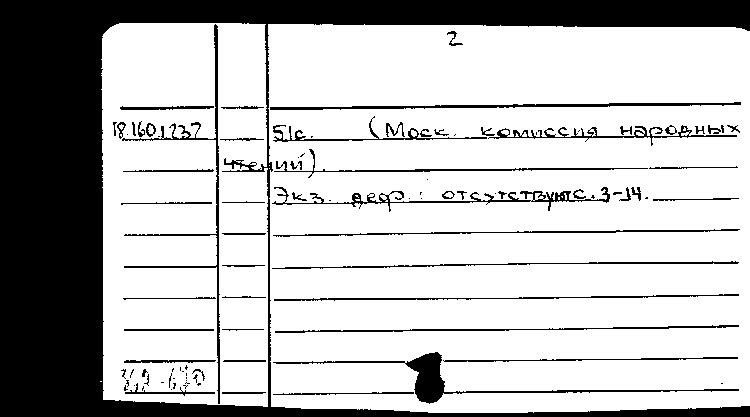 2
18.160.1.237 51с. (Моск. комиссия народных
чтений).
Экз. деф.: отсутствуют с. 3-14.